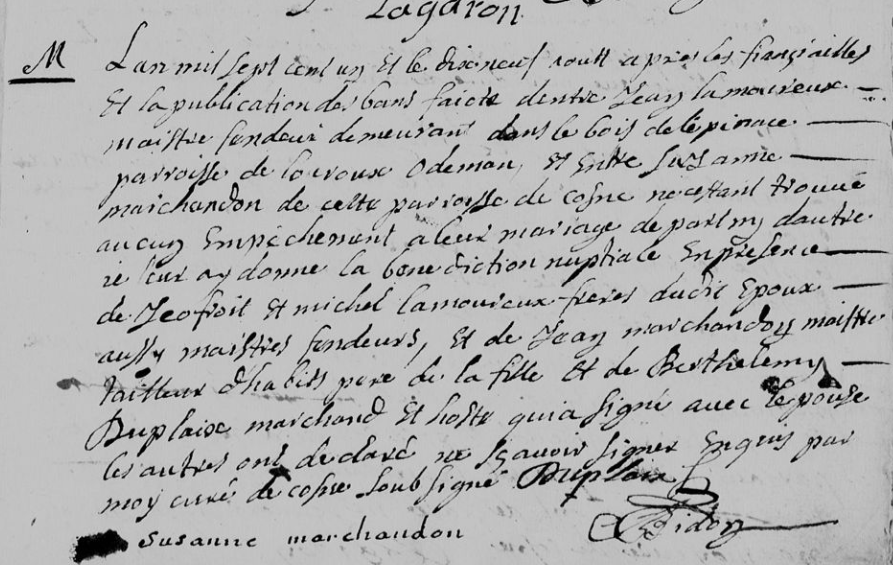 Lagaron
M
L'an mil sept cent un et le dix neuf aoutt apres les fiançialles
et la publication des bans faicte dentre Jean lamoureux
maistre fendeur demeurant dans le bois de lepinace
parroisse de louroux odeman, et entre Suzanne
marchandon de cette parroisse de cosne ne cestant trouvé
aucun empechement a leur mariage de part ny dautre
ie leur ay donné la benediction nuptiale en presence
de Jeofroit et michel lamoureux freres dudit epoux
aussy maistres fendeurs, et de Jean marchandon maistre
tailleur dhabits pere de la fille et de Berthelemy
Duplaix marchand et hoste qui a signé avec lepouse
les autres ont declaré ne sçavoir signer enquis par
moy curé de cosne soubsigné Duplaix
susanne marchandon
Bidon